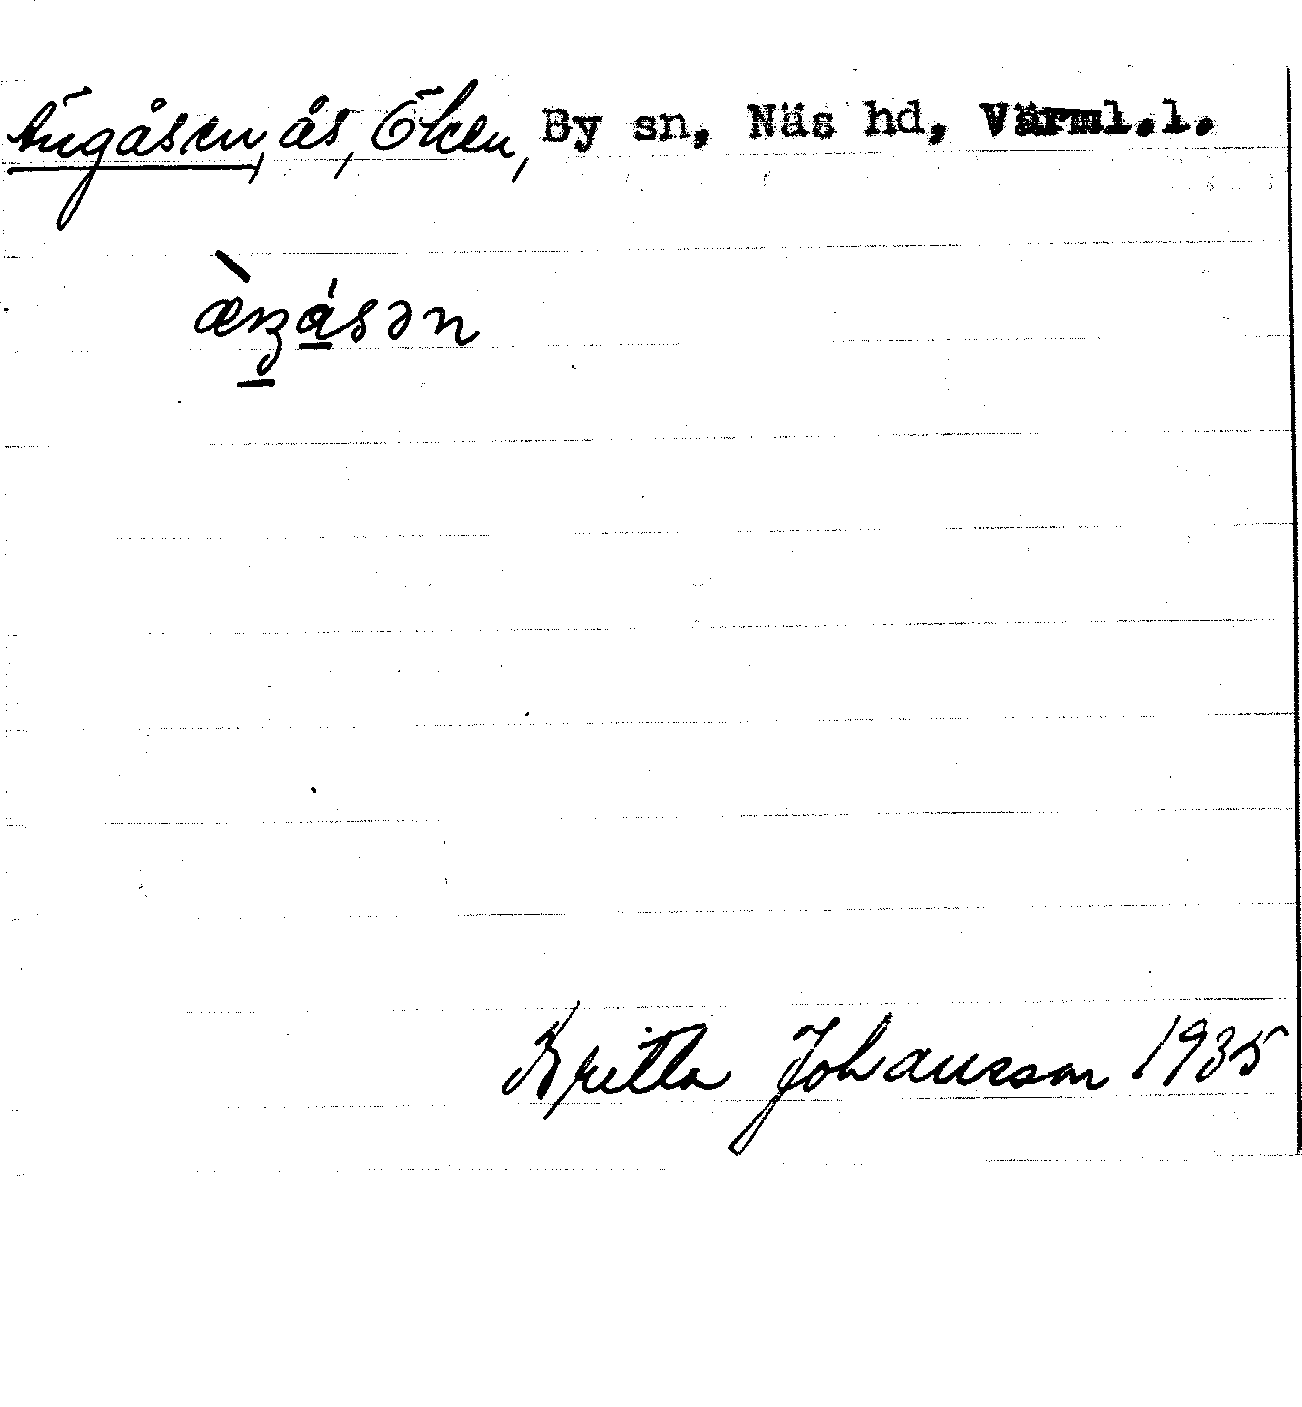 Ängåsen, ås, Öken, By sn, Näs hd, Värml.l.
æ̀ŋåsən
Britta Johansson 1935